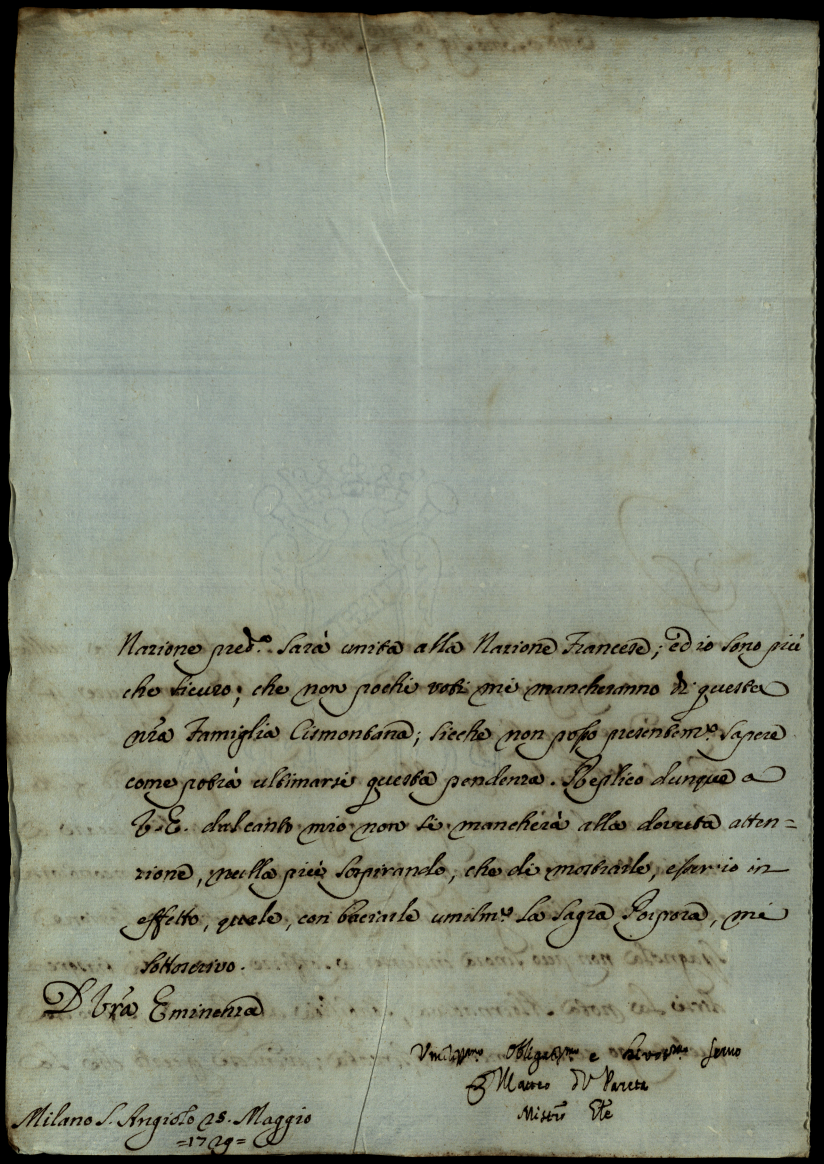 Nazione pred.ª sarà unita alla Nazione Francese; ed io sono più
che sicuro, che non pochi voti mi mancheranno di questa
nr̃a Famiglia Cismontana; sicche non posso presentem.e sapere
come potrà ultimarsi questa pendenza. Replico dunque a
V. E. dal canto mio non si mancherà alla dovuta atten=
zione, nulla più sospirando, che di mostrarle, esser io in
effetto, quale, con baciarle umilm.e la Sagra Porpora, mi
sottoscrivo.
D Vr̃a Eminenza
Umilissmo Obligatmo e Devotmo Servo
F Matteo D Pareta
Mistro Gle
Milano S. Angiolo 28. Maggio
=1729=